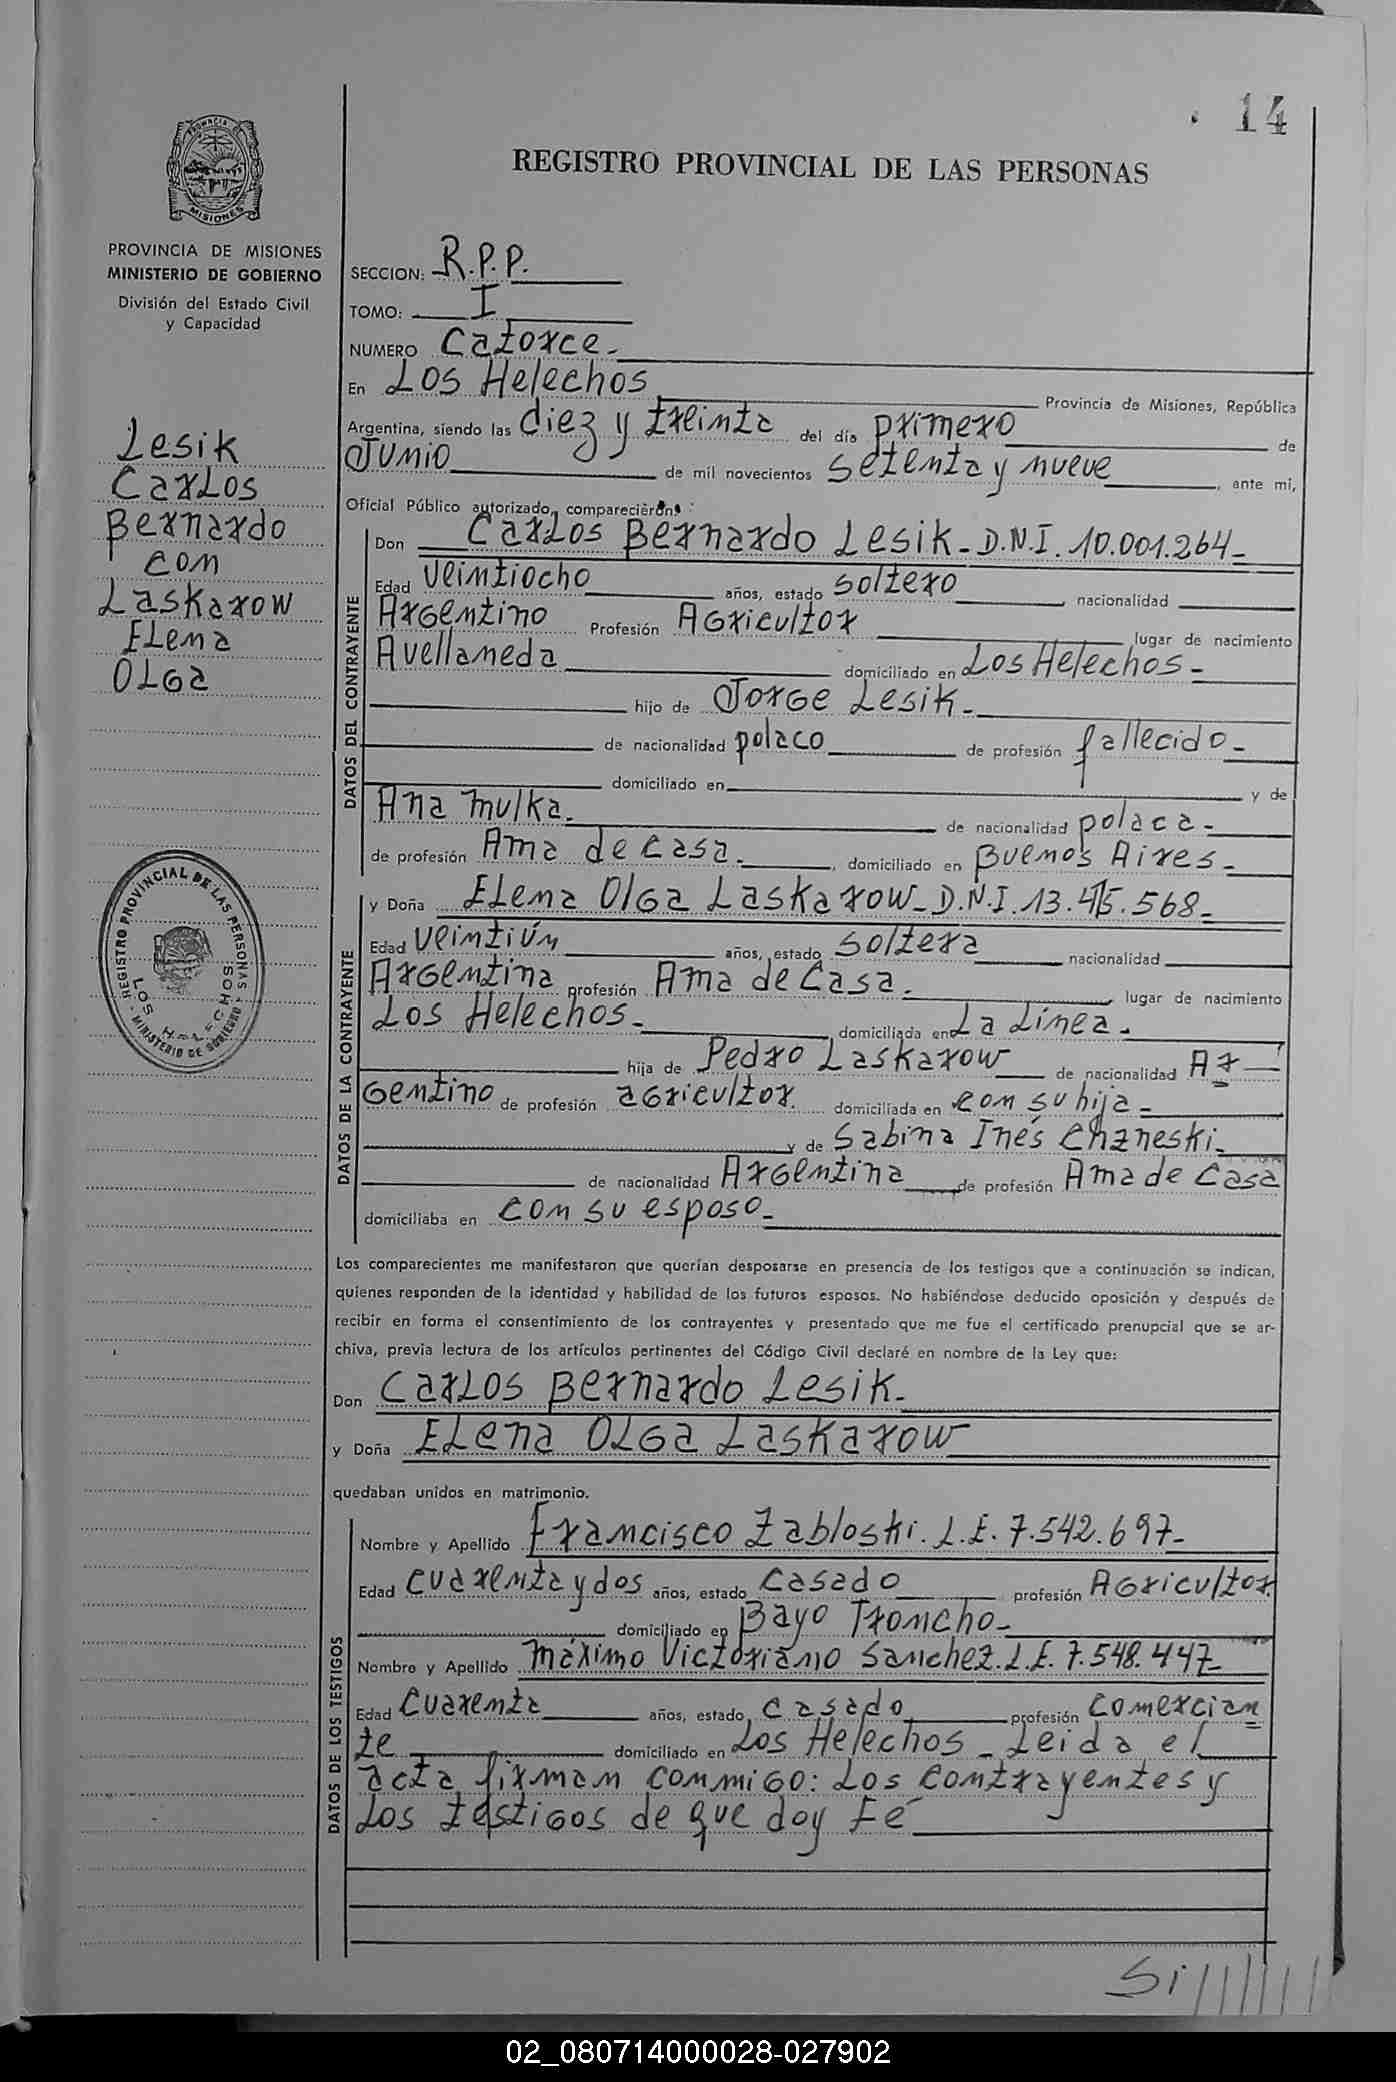 14
REGISTRO PROVINCIAL DE LAS PERSONAS
PROVINCIA DE MISIONES
PROVINCIA DE MISIONES
MINISTERIO DE GOBIERNO
División del Estado Civil
y Capacidad
Lesik
Carlos
Bernardo
con
Laskarow
Elena
Olga
REGISTRO PROVINCIAL DE LAS PERSONAS
LOS HELECHOS
MINISTERIO DE GOBIERNO
SECCION: R.P.P.
TOMO: I
NUMERO Catorce.
En Los Helechos Provincia de Misiones, República
Argentina, siendo las diez y treinta del día primero de
Junio de mil novecientos setenta y nueve, ante mí,
Oficial Público autorizado, comparecieron:
DATOS DEL CONTRAYENTE
Don Carlos Bernardo Lesik - D.N.I. 10.001.264-
Edad veintiocho años, estado soltero nacionalidad
Argentino Profesión Agricultor lugar de nacimiento
Avellaneda domiciliado en Los Helechos-
hijo de Jorge Lesik-
de nacionalidad polaco de profesión fallecido-
domiciliado en y de
Ana Mulka. de nacionalidad polaca-
de profesión Ama de casa. , domiciliado en Buenos Aires-
DATOS DE LA CONTRAYENTE
y Doña Elena Olga Laskarow- D.N.I. 13.415.568-
Edad veintiún años, estado soltera nacionalidad
Argentina profesión Ama de Casa. lugar de nacimiento
Los Helechos- domiciliada en La Linea-
hija de Pedro Laskarow de nacionalidad Ar
gentino de profesión agricultor. domiciliada en con su hija-
y de Sabina Inés Chzneski-
de nacionalidad Argentina de profesión Ama de Casa
domiciliaba en con su esposo-
Los comparecientes me manifestaron que querían desposarse en presencia de los testigos que a continuación se indican,
quienes responden de la identidad y habilidad de los futuros esposos. No habiéndose deducido oposición y después de
recibir en forma el consentimiento de los contrayentes y presentado que me fue el certificado prenupcial que se ar-
chiva, previa lectura de los artículos pertinentes del Código Civil declaré en nombre de la Ley que:
Don Carlos Bernardo Lesik-
y Doña Elena Olga Laskarow
quedaban unidos en matrimonio.
DATOS DE LOS TESTIGOS
Nombre y Apellido Francisco Zabloski. L.E. 7.542.697-
Edad cuarenta y dos años, estado casado profesión Agricultor
domiciliado en Bayo Troncho-
Nombre y Apellido Máximo Victoriano Sanchez. L.E. 7.548.447-
Edad Cuarenta años, estado casado profesión comercian
te domiciliado en Los Helechos - Leida el
acta firman conmigo: Los Contrayentes y
Los testigos de que doy Fé
Si
02_080714000028-027902